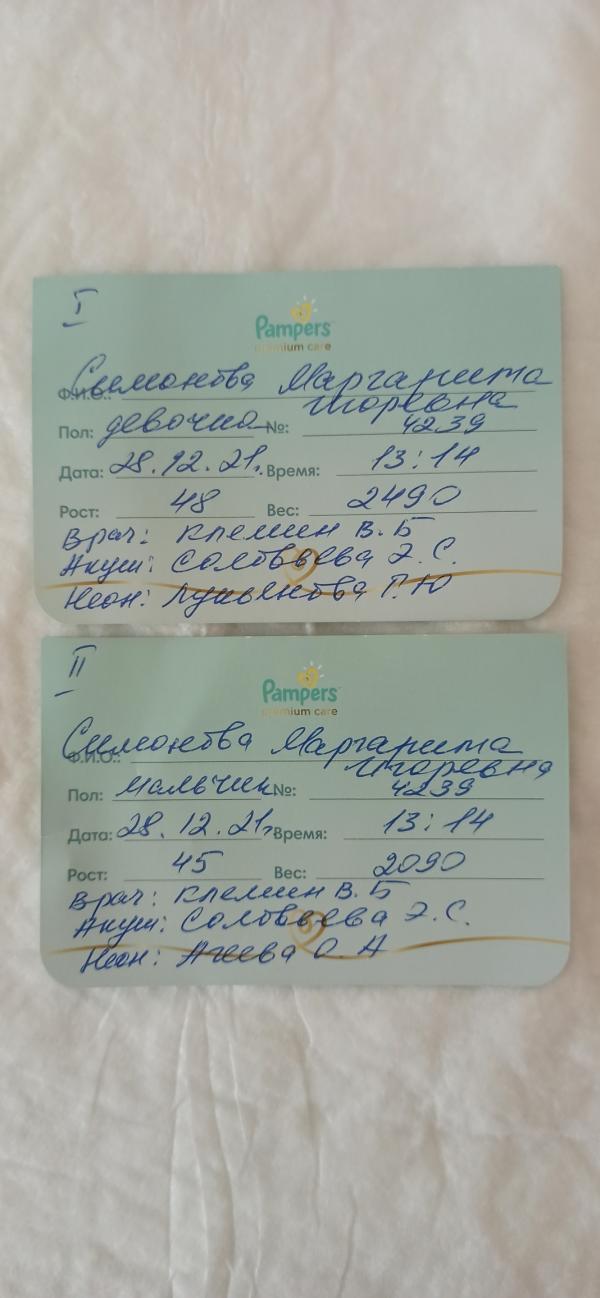 I
Pampers
premium care
Ф.И.О.: Симонова Маргарита
Игоревна
Пол: девочка №: 4239
Дата: 28.12.21г. Время: 13:14
Рост: 48 Вес: 2490
Врач: Клемин В.Б
Акуш: Соловьева Э.С.
Неон: Лукьянова Г.Ю
II
Pampers
premium care
Ф.И.О.: Симонова Маргарита
Игоревна
Пол: мальчик №: 4239
Дата: 28.12.21г Время: 13:14
Рост: 45 Вес: 2090
Врач: Клемин В.Б
Акуш: Соловьева Э.С.
Неон: Агеева О.А